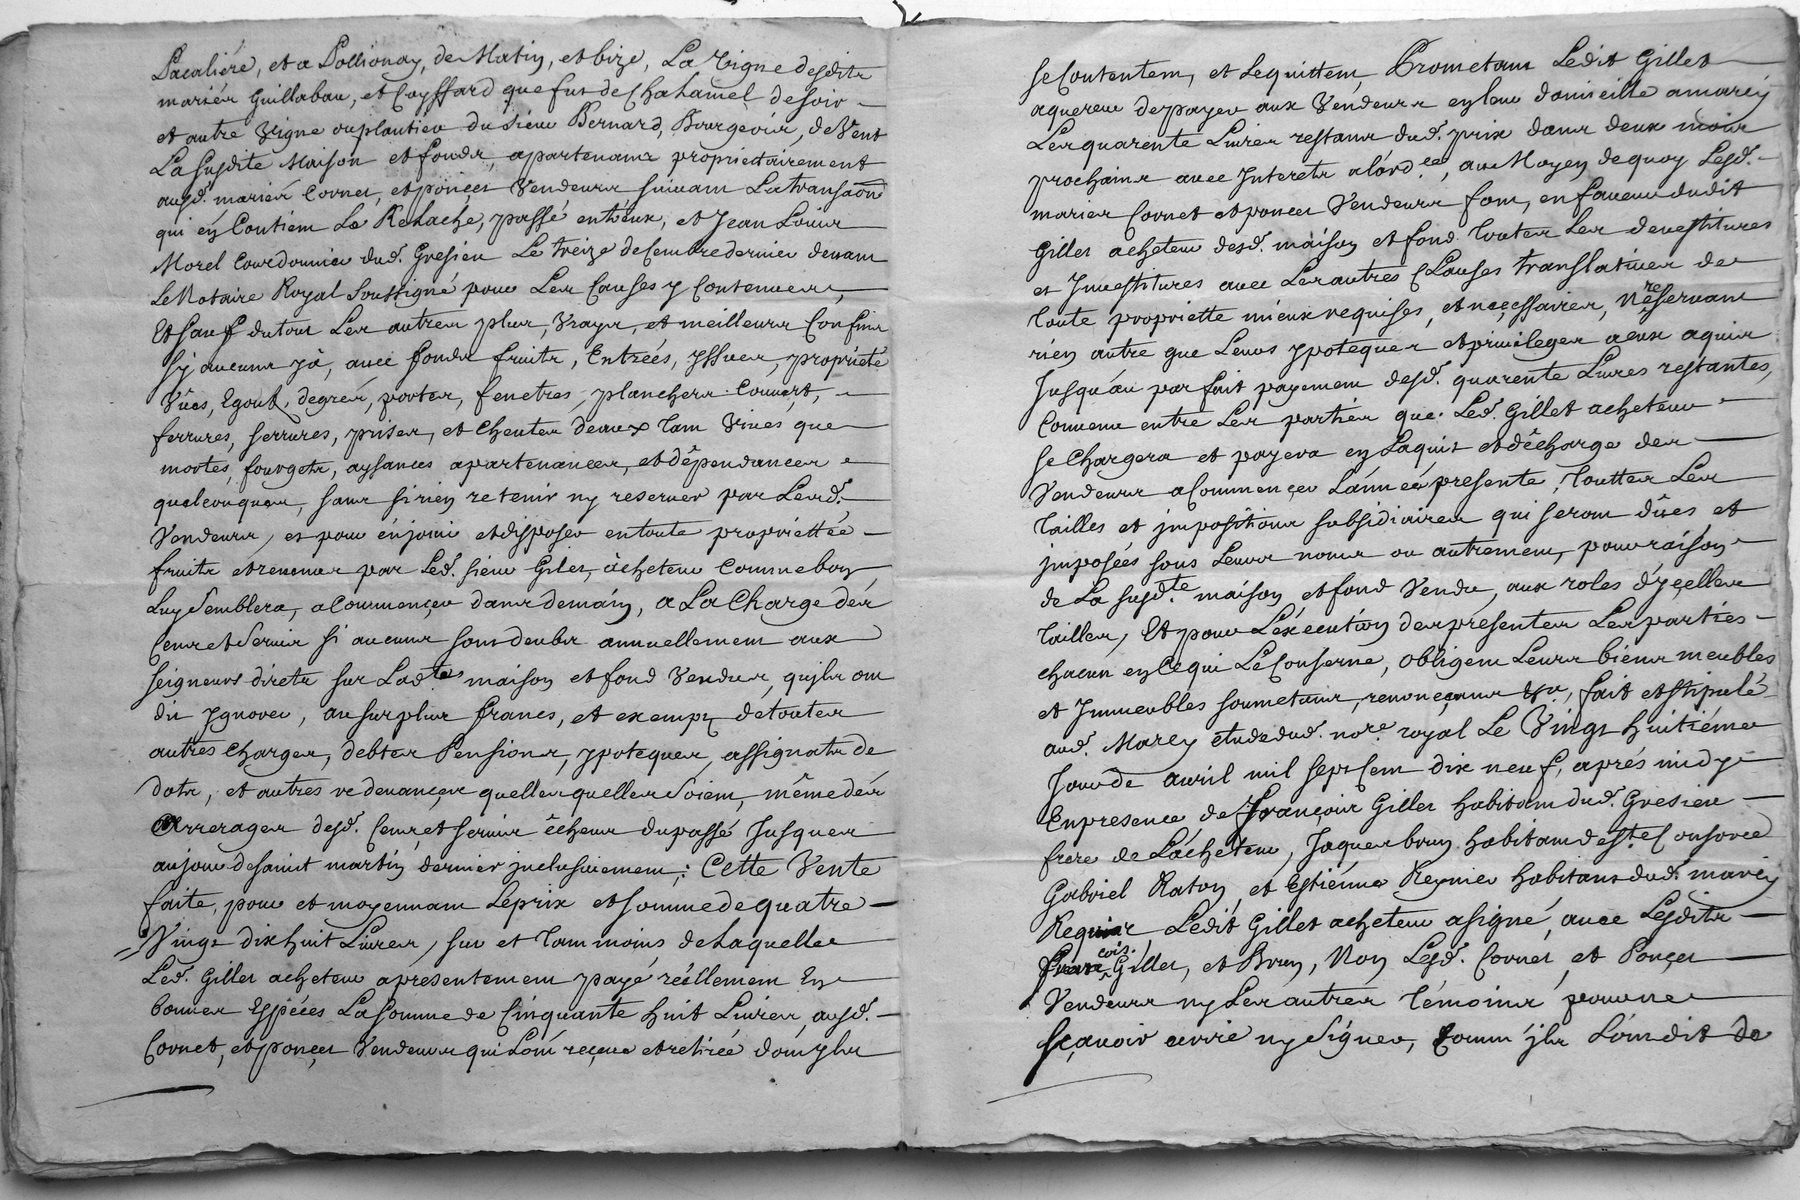 Lacaliére, et a Pollionay, de Matin, et bize, La vigne desdits
mariés Guillabau, et Coyffard que fut de Chalamel de soir
et autre vigne ou plantier du sieur Bernard, Bourgeois, de Vent
La susdite Maison et fonds, apartenans proprietairement
ausd. mariés Cornet, et ponçet Vendeurs suivant La transaõn
qui en Contient Le Relache, passé entr'eux, et Jean Louis
Morel Courdounier dud. Gresieu Le treize decembre dernier devant
Le Notaire Royal Soussigné pour Les Causes y Contenues,
Et sauf du tout Les autres plus, Vrays, et meilleurs Confins
sy aucuns y à, avec fonds fruits, Entrées, yssues, proprieté
Vües, Egouts, degrés, portes, fenetres, planchers. Couvert,
ferrures, serrures, prises, et Cheutes deaux tant vives que
mortes, fourgets, aysances apartenances, et dêpendances
quelconques, sans si rien retenir ny reserver par Lesd.
Vendeurs, et pour en joüir et disposer en toute propriettée
fruits et revenus par Led. sieur Gilet, acheteur Comme bon
Luy Semblera, a Commençer dans demain, a La Charge des
Cens et Servis si aucuns sont deubs annuellement aux
Seigneurs direts sur Lad.tes maison et fond Vendus, quils ont
dit ygnorer, au surplus francs, et exempts de toutes
autres charges, debtes Pensions, ypoteques, assignats de
dots, et autres redevançes quelles quelles Soient, même des
Arrerages desd. Cens, et servis êcheus du passé Jusques
au jour de saint martin dernier jnclusivement; Cette Vente
faite, pour et moyennant Le prix et somme de quatre
Vingt dix huit Livres, sur et tant moins de Laquelle
Led. Gillet acheteur a presentement payé réellement En
bonnes Espéces La somme de Cinquante huit Livres, ausd.
Cornet, et ponçet Vendeurs qui L'ont reçeue et retirée dont ils
se Contentent, et Le quittent, Prometant Ledit Gillet
aquereur de payer aux Vendeurs en leur domicille a marcy
Les quarente Livres restans dud. prix dans deux mois
prochains avec Interets a l'ord.ce, au Moyen de quoy Lesd.
mariés Cornet et ponçet Vendeurs font, en faveur dudit
Gillet acheteur desd. maison et fond Toutes Les devestitures
et Jnvestitures avec Les autres Clauses translatives de
toute propriette mieux requises, et neçessaires, N'reservant
rien autre que Leurs ypoteques et privileges a eux aquis
Jusqu'au parfait payement desd. quarente Livres restantes,
Convenu entre Les parties que Led. Gillet acheteur
se Chargera et payera en Laquit et dêcharge des
Vendeurs a Commençer L'année presente, Touttes Les
Tailles et jmpositions subsidiaires qui seront dües et
jmposées sous Leurs noms ou autrement, pour raison
de La susd.te maison et fond Vendu, aux roles d'yçelles
tailles, Et pour L'éxecution des presentes Les parties
chacun en Ce qui Le Conserne, obligent Leurs biens meubles
et Jmmeubles soumetans, renonçeans &a, fait et stipulé
aud. Marcy etude dud. no.re royal Le Vingt huitiéme
Jour de avril mil sept Cent dix neuf, aprés midy
En presence de françois Gillet habitant dud. Gresieu
frere de L'acheteur, Jaques brun habitant de S.te Consorce
Gabriel Raton, et Estienne Reynier habitans dud. marcy
Requis, Ledit Gillet acheteur a signé, avec Lesdits
frane cois. Gillet, et Brun, Non Lesd. Cornet, et Ponçet
Vendeurs ny Les autres témoins, pour ne
sçavoir ecrire ny Signer, Comm' ils L'ont dit de